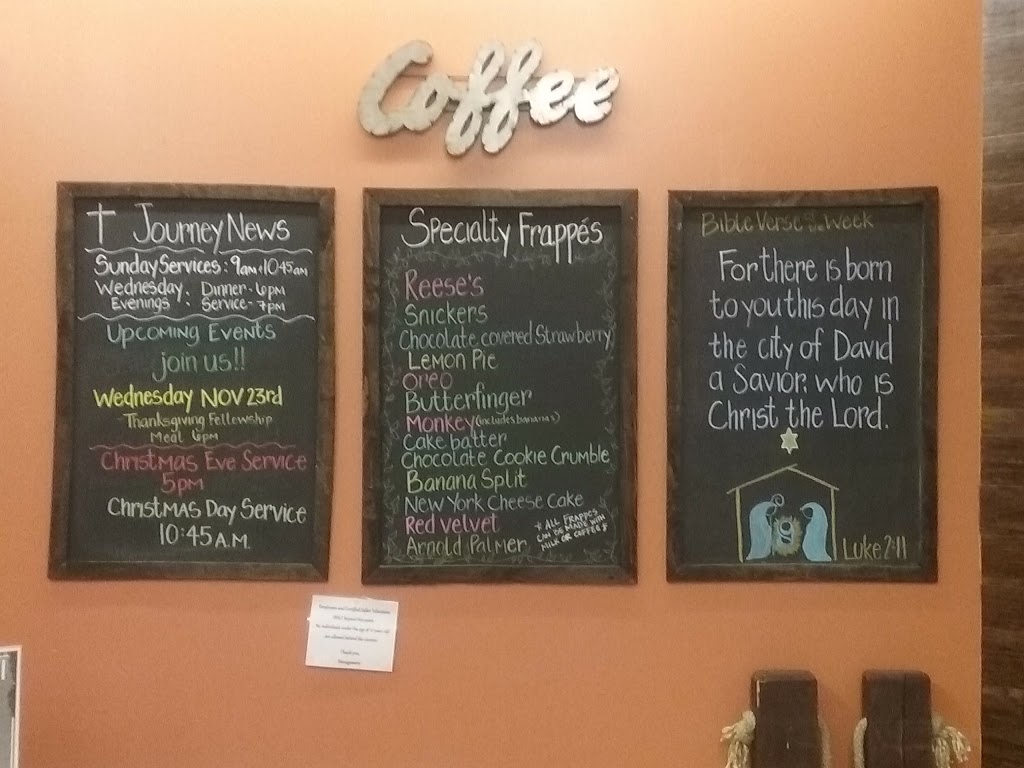 Coffee
† Journey News
Sunday Services: 9am & 10:45am
Wednesday Evenings: Dinner - 6pm
Service - 7pm
Upcoming Events
join us!!
Wednesday Nov 23rd
Thanksgiving Fellowship
Meal 6pm
Christmas Eve Service
5pm
Christmas Day Service
10:45 A.M.
Specialty Frappés
Reese's
Snickers
Chocolate covered Strawberry
Lemon Pie
Oreo
Butterfinger
Monkey (includes bananas)
Cake batter
Chocolate Cookie Crumble
Banana Split
New York Cheese Cake
Red velvet
Arnold Palmer
* All Frappes
can be made with
milk or coffee *
Bible Verse of the Week
For there is born
to you this day in
the city of David
a Savior, who is
Christ the Lord.
Luke 2:11
Thank you,
Management